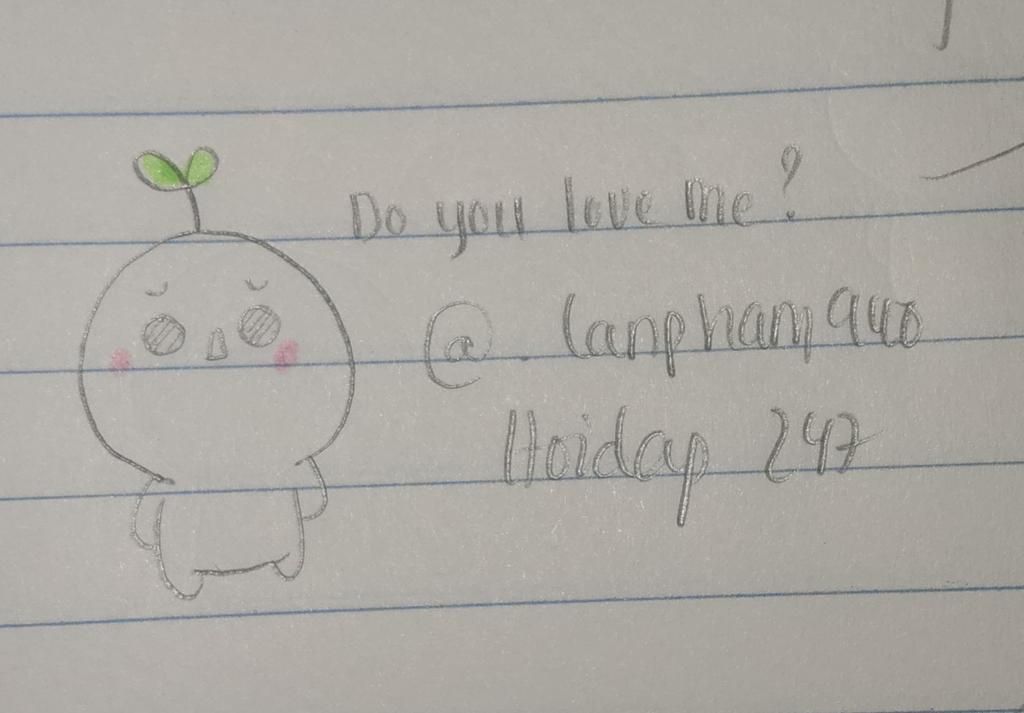 Do you love me?
@ lanpham940
Hoidap 247